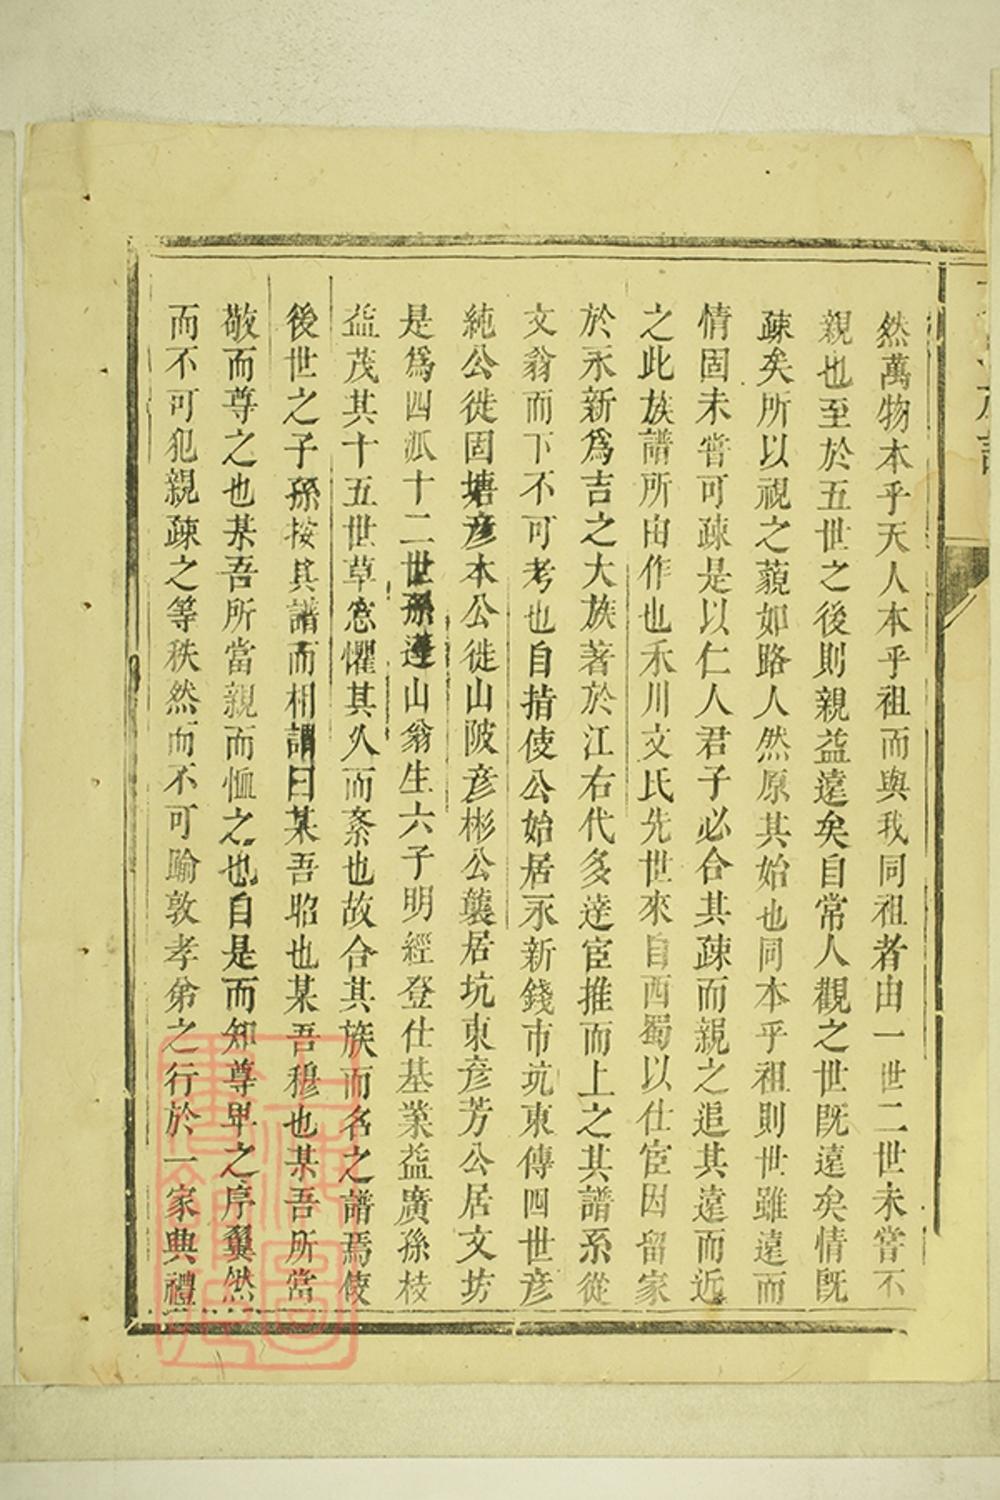 然萬物本乎天人本乎祖而與我同祖者由一世二世未嘗不
親也至於五世之後則親益遠矣自常人觀之世旣遠矣情旣
疎矣所以視之藐如路人然原其始也同本乎祖則世雖遠而
情固未嘗可疎是以仁人君子必合其疎而親之追其遠而近
之此族譜所由作也禾川文氏先世來自西蜀以仕宦因留家
於永新爲吉之大族著於江右代多逹宦推而上之其譜系從
文翁而下不可考也自指使公始居永新錢市坑東傳四世彦
純公徙固塘彦本公徙山陂彦彬公襲居坑東彦芳公居文坊
是爲四派十二世孫蓮山翁生六子明經登仕基業益廣孫枝
益茂其十五世草窓懼其久而紊也故合其族而名之譜焉俟
後世之子孫按其譜而相謂曰某吾昭也某吾穆也某吾所當
敬而尊之也某吾所當親而恤之也自是而知尊卑之序翼然
而不可犯親疎之等秩然而不可踰敦孝弟之行於一家典禮